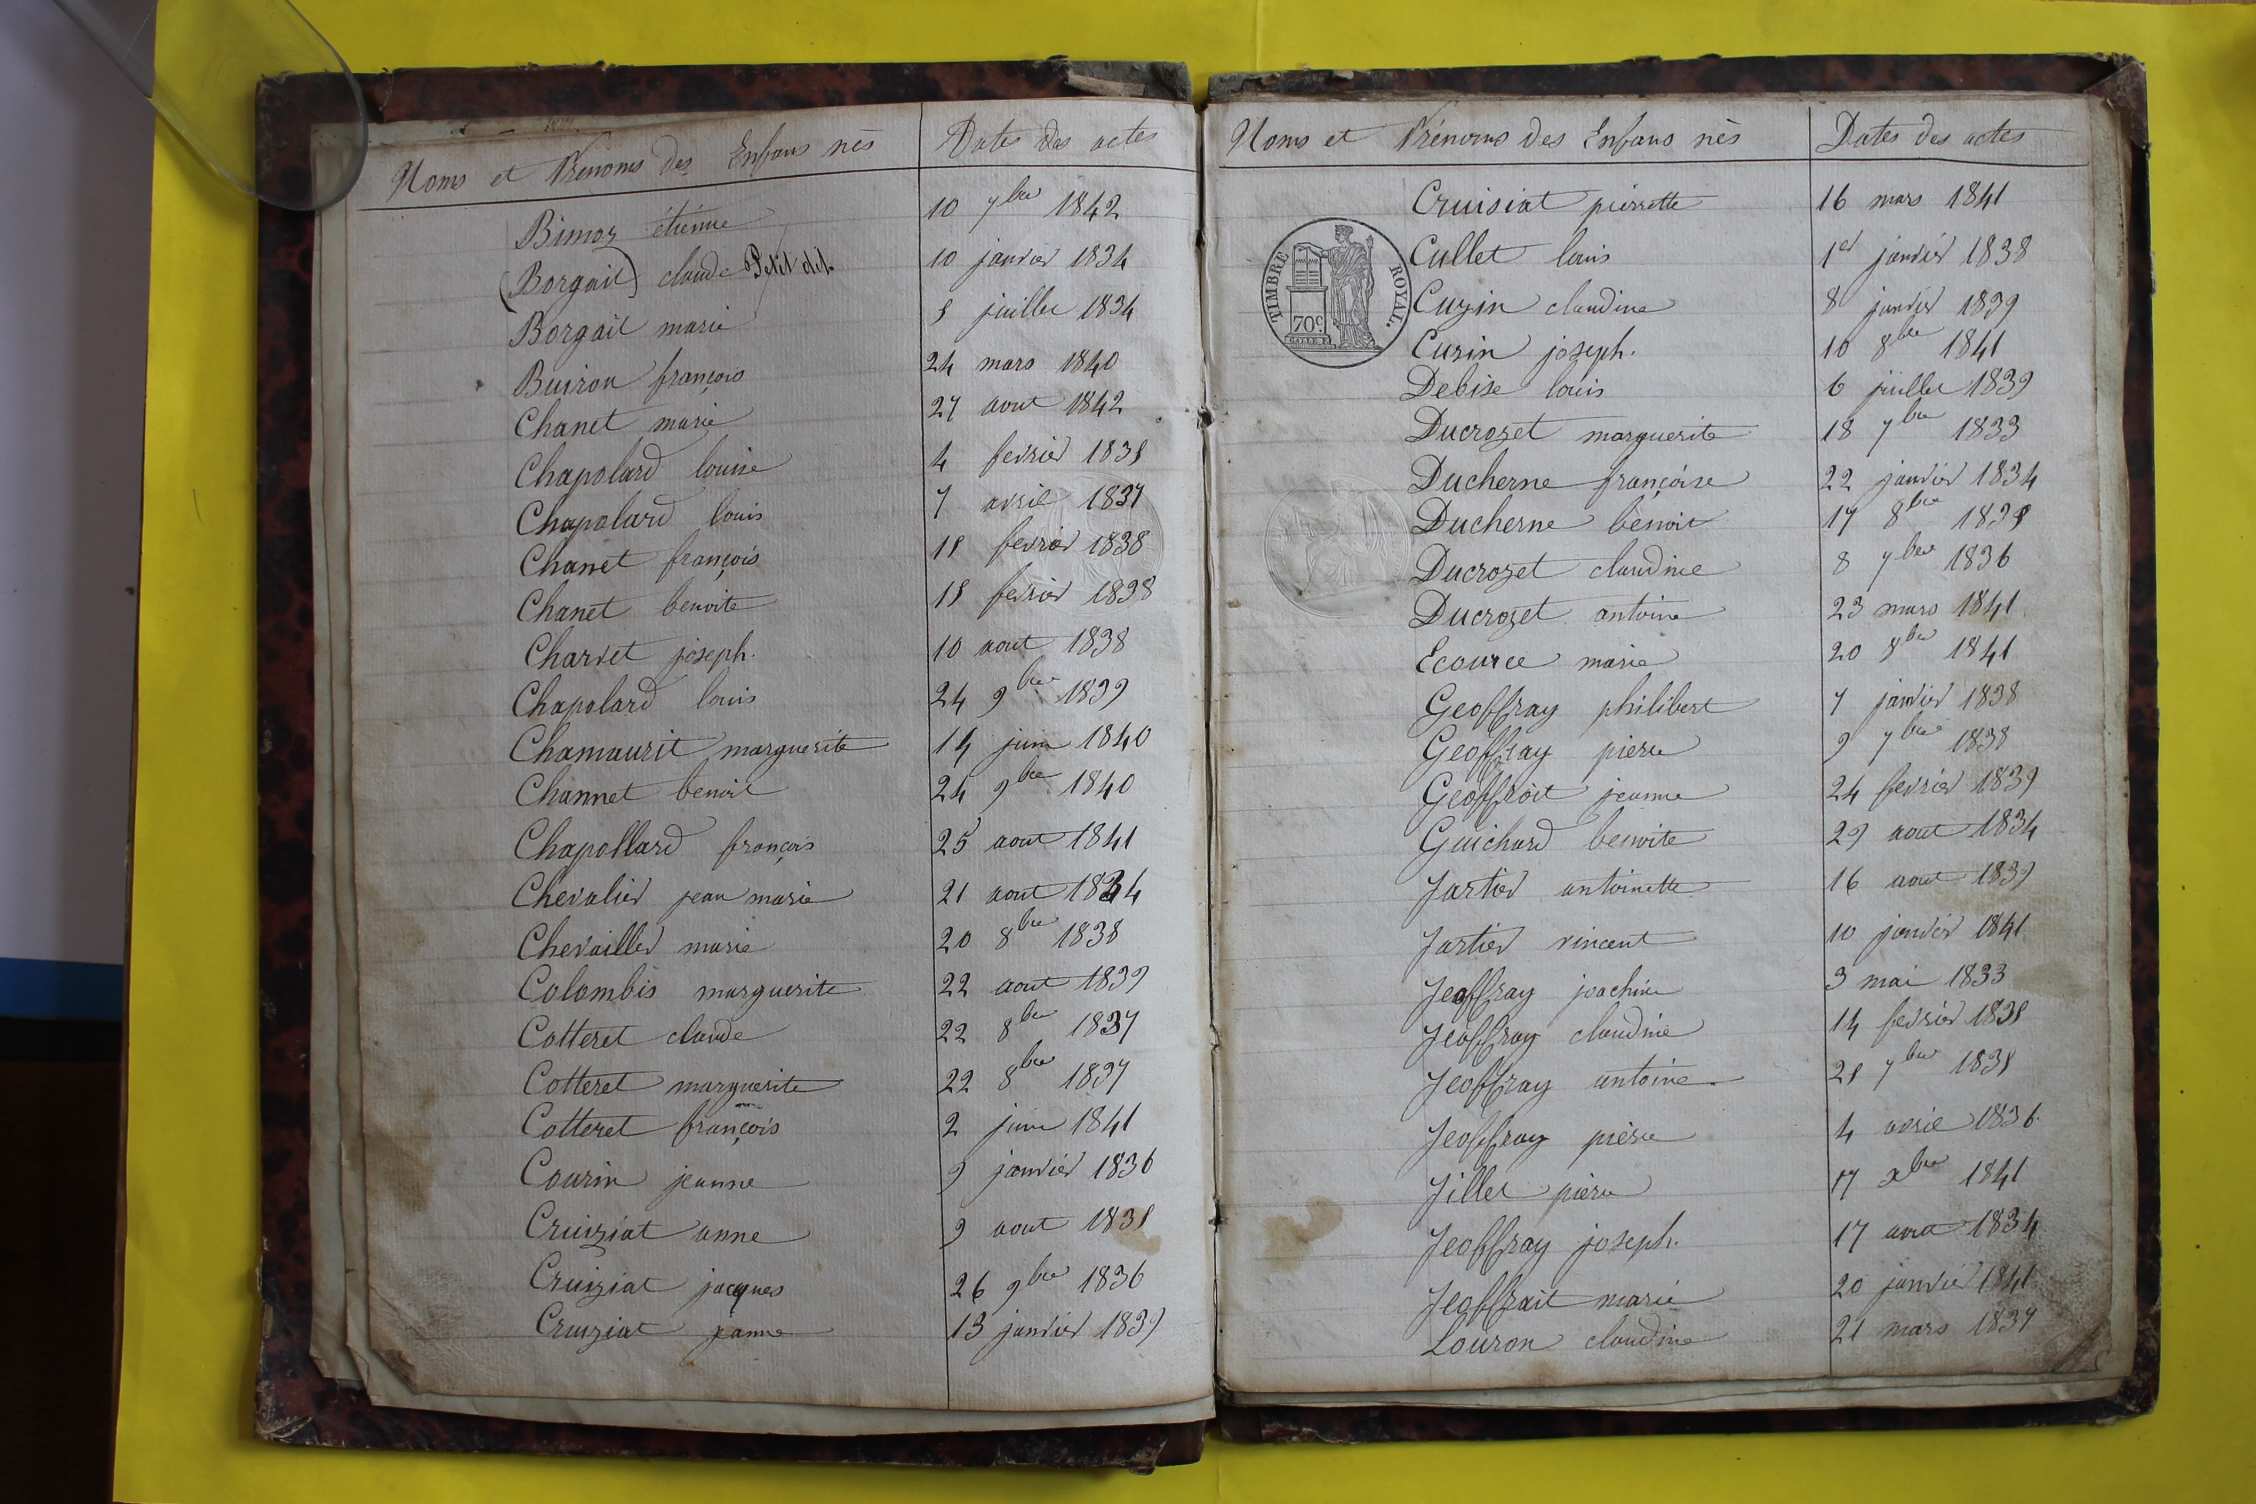 Noms et Prénoms des Enfans nés Dates des actes
Bimoz étienne 10 7bre 1842
(Borgait) claude Petit dit 10 janvier 1834
Borgait marie 8 juillet 1834
Buiron françois 24 mars 1840
Chanet marie 27 aout 1842
Chapolard louise 4 fevrier 1838
Chapolard louis 7 avril 1837
Chanet françois 18 fevrier 1838
Chanet benoite 18 fevrier 1838
Charvet joseph. 10 aout 1838
Chapolard louis 24 9bre 1839
Chamaurit marguerite 14 juin 1840
Channet benoit 24 9bre 1840
Chapollard françois 25 aout 1841
Chevalier jean marie 21 aout 1834
Chevailler marie 20 8bre 1838
Colombis marguerite 22 aout 1839
Cotteret claude 22 8bre 1837
Cotteret marguerite 22 8bre 1837
Cotteret françois 2 juin 1841
Courin jeanne 9 janvier 1836
Cruiziat anne 9 aout 1838
Cruiziat jacques 26 9bre 1836
Cruiziat janne 13 janvier 1839
Noms et Prénoms des Enfans nés Dates des actes
Cruisiat pierrette 16 mars 1841
Cullet louis 1er janvier 1838
TIMBRE ROYAL.
70c.
Cuzin claudine 8 janvier 1839
Curin joseph. 10 8bre 1841
Debise louis 6 juillet 1839
Ducrozet marguerite 18 7bre 1833
Ducherne françoise 22 janvier 1834
Ducherne benoit 17 8bre
Ducrozet claudine 8 7bre 1836
Ducrozet antoine 23 mars 1841
Ecource marie 20 8bre 1841
Geoffray philibert 7 janvier 1838
Geoffray pierre 9 7bre 1838
Geoffroit jeanne 24 fevrier 1839
Guichard benoite 29 aout 1834
Jartier antoinette 16 aout 1839
Jartier vincent 10 janvier 1841
Jeoffray joachim 3 mai 1833
Jeoffray claudine 14 fevrier 1838
Jeoffray antoine 28 7bre 1838
Jeoffray pièrre 4 avril 1836
Jillet pièrre 17 xbre 1841
Jeoffray joseph. 17 1834
Jeoffrait marie 20 janvier 1841
Louron claudine 21 mars 1837